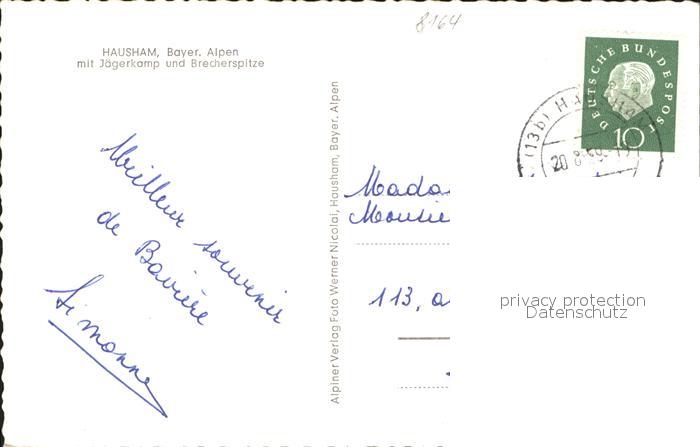 8164
HAUSHAM, Bayer. Alpen
mit Jägerkamp und Brecherspitze
DEUTSCHE BUNDESPOST
10
(13b)
20.8.59
Meilleur souvenir
de Bavière
Simonne
Alpiner Verlag Foto Werner Nicolai, Hausham, Bayer. Alpen
Mada
Monsie
113, a
privacy protection
Datenschutz